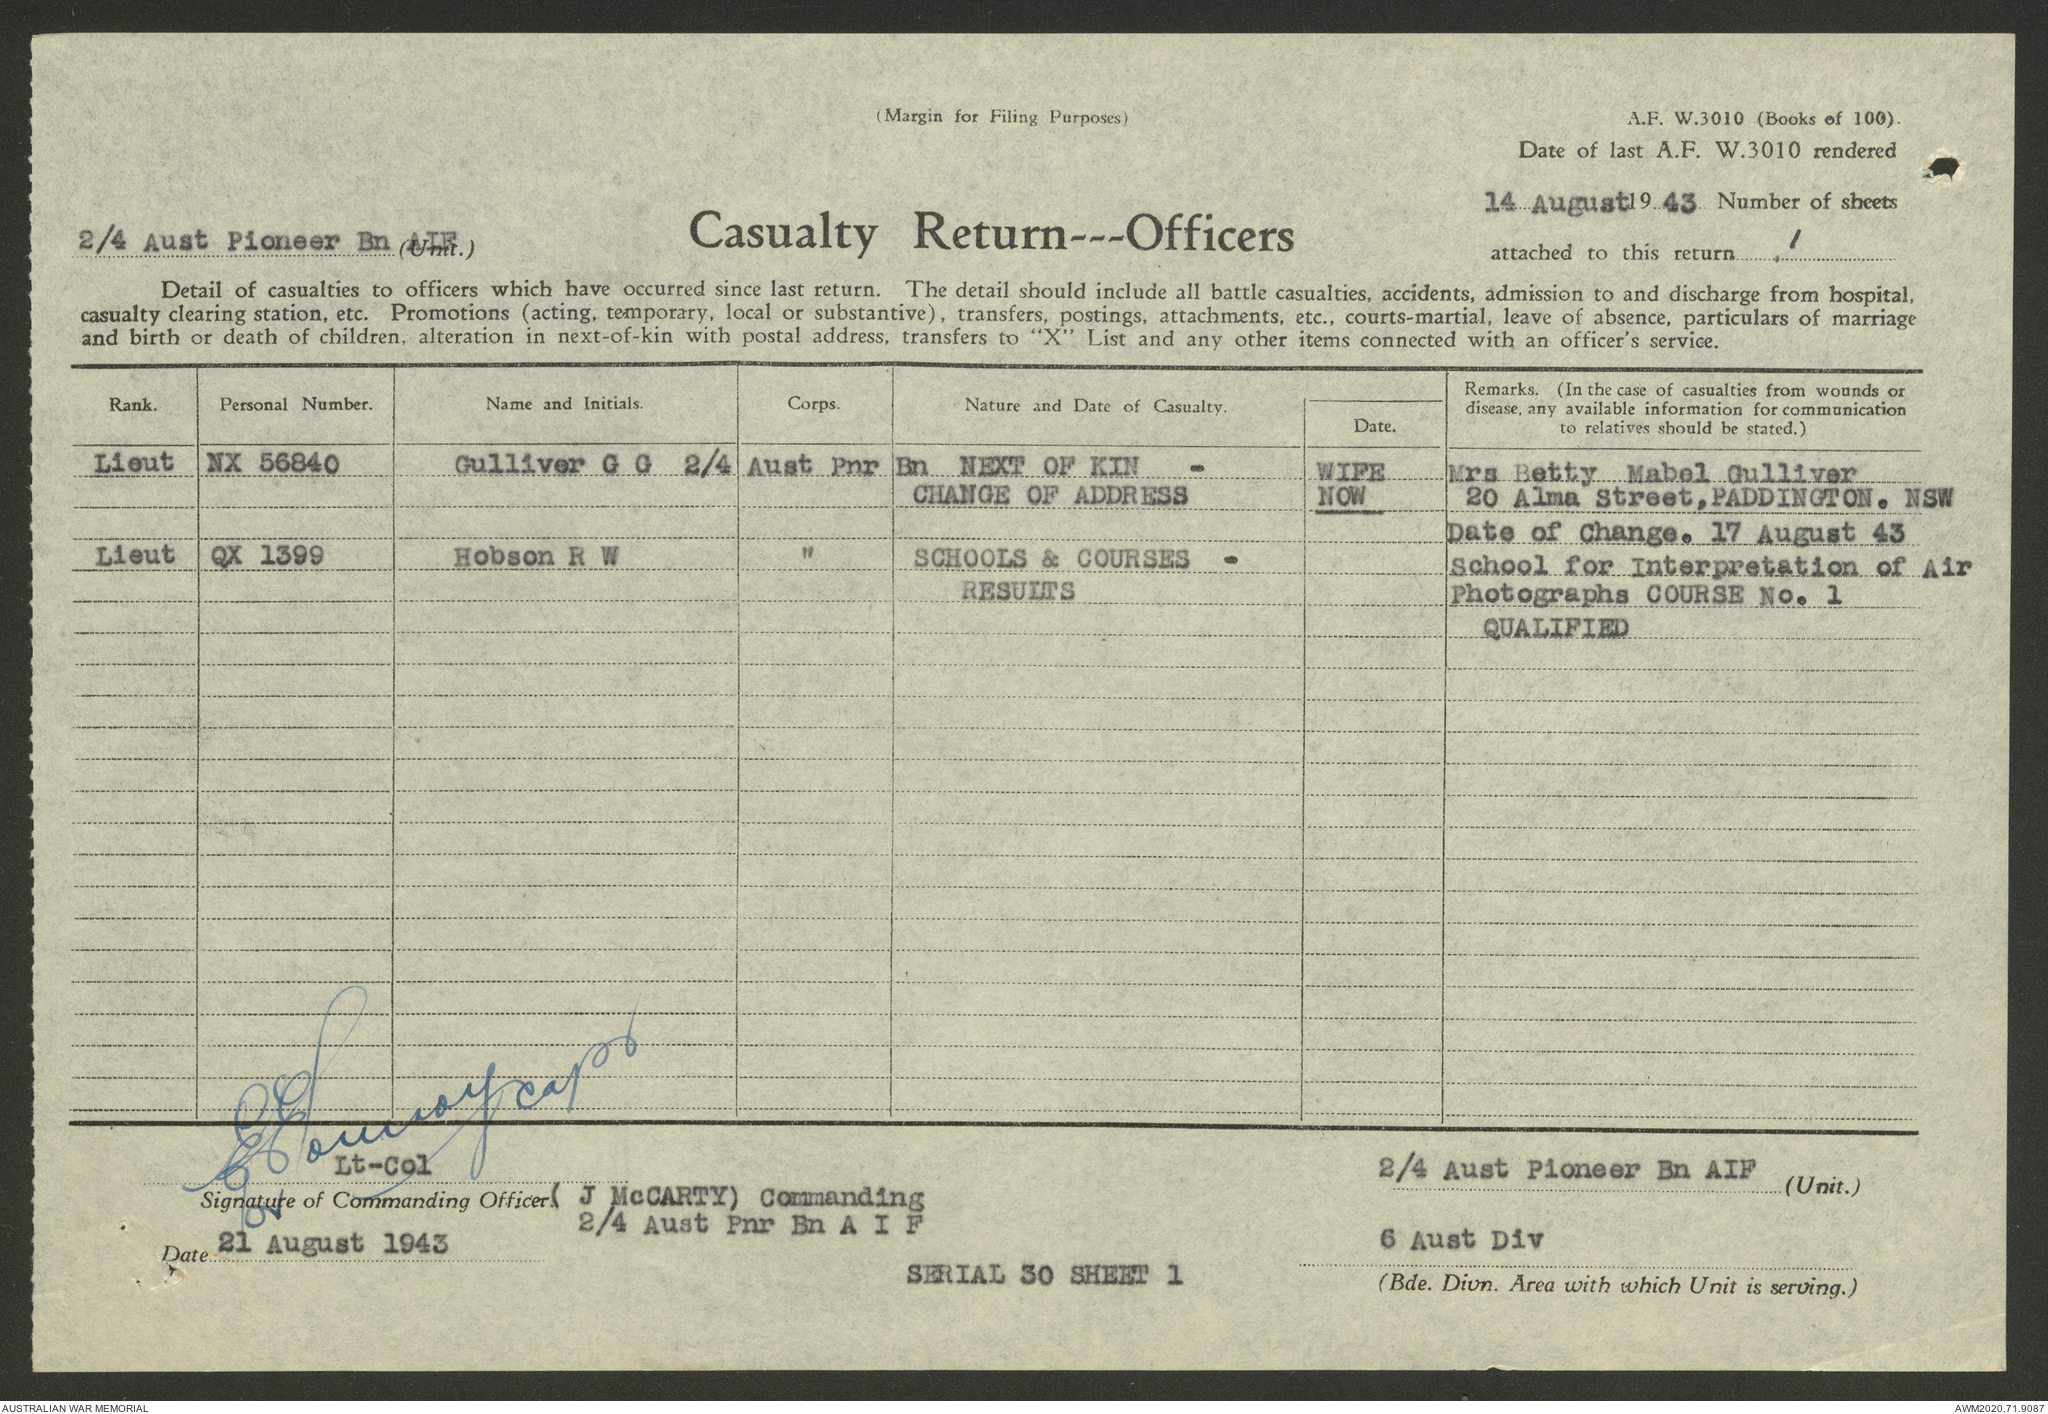 (Margin for Filing Purposes)
A.F. W.3010 (Books of 100).
Date of last A.F. W.3010 rendered
14 August 19 43 Number of sheets
attached to this return 1
2/4 Aust Pioneer Bn AIF (Unit.)
Casualty Return---Officers
Detail of casualties to officers which have occurred since last return. The detail should include all battle casualties, accidents, admission to and discharge from hospital,
casualty clearing station, etc. Promotions (acting, temporary, local or substantive), transfers, postings, attachments, etc., courts-martial, leave of absence, particulars of marriage
and birth or death of children, alteration in next-of-kin with postal address, transfers to "X" List and any other items connected with an officer's service.
Rank. Personal Number. Name and Initials. Corps. Nature and Date of Casualty. Date.
Remarks. (In the case of casualties from wounds or
disease, any available information for communication
to relatives should be stated.)
Lieut NX 56840 Gulliver G G 2/4 Aust Pnr Bn NEXT OF KIN - WIFE Mrs Betty Mabel Gulliver
CHANGE OF ADDRESS NOW 20 Alma Street, PADDINGTON. NSW
Date of Change. 17 August 43
Lieut QX 1399 Hobson R W " SCHOOLS & COURSES - School for Interpretation of Air
RESULTS Photographs COURSE No. 1
QUALIFIED
Capt
Lt-Col
Signature of Commanding Officer. ( J McCARTY) Commanding
2/4 Aust Pnr Bn A I F
Date 21 August 1943
SERIAL 30 SHEET 1
2/4 Aust Pioneer Bn AIF (Unit.)
6 Aust Div
(Bde. Divn. Area with which Unit is serving.)
AUSTRALIAN WAR MEMORIAL
AWM2020.71.9087